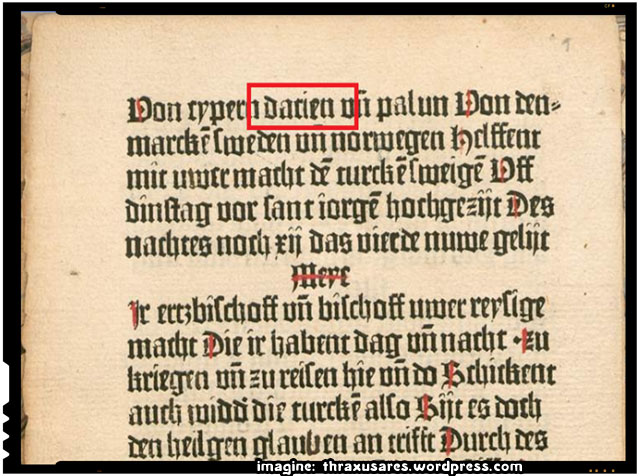 Von cypern dacien vñ palun Von den⸗
marckē sweden vñ norwegen Helffent
mit uwer macht dē turckē sweigē Vff
dinstag vor sant iorgē hochgezijt Des
nachtes noch xij das vierde nuwe gelijt
Meye
Ir ertzbischoff vñ bischoff uwer reysige
macht Die ir habent dag vñ nacht · zu
kriegen vñ zu reisen hie vñ do Schickent
auch widd die turckē also Sijt es doch
den heilgen glauben an trifft Durch des
imagine: thraxusares.wordpress.com